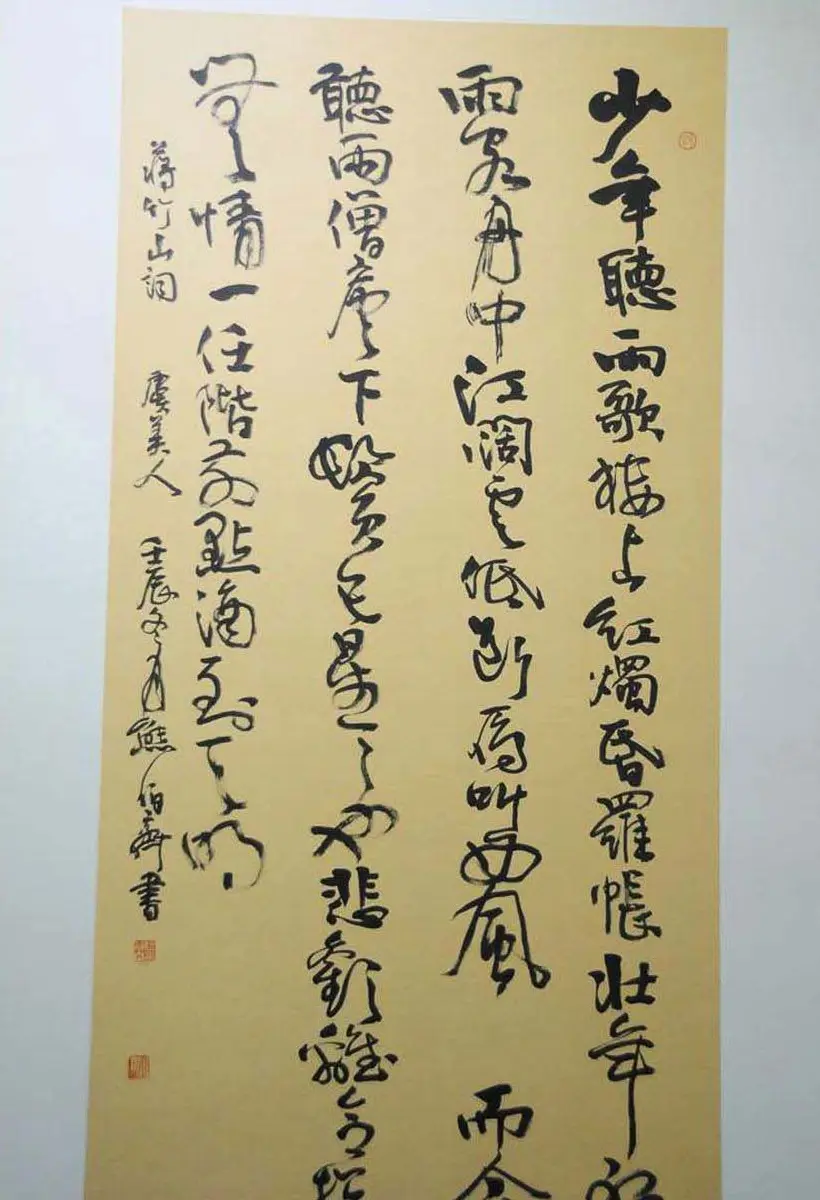 少年聽雨歌樓上紅燭昏羅帳壯年
雨客舟中江闊雲低斷雁叫西風 而今
聽雨僧廬下鬢已星星也悲歡離合總
無情一任階前點滴到天明
蔣竹山詞 虞美人 壬辰冬月熊伯齊書